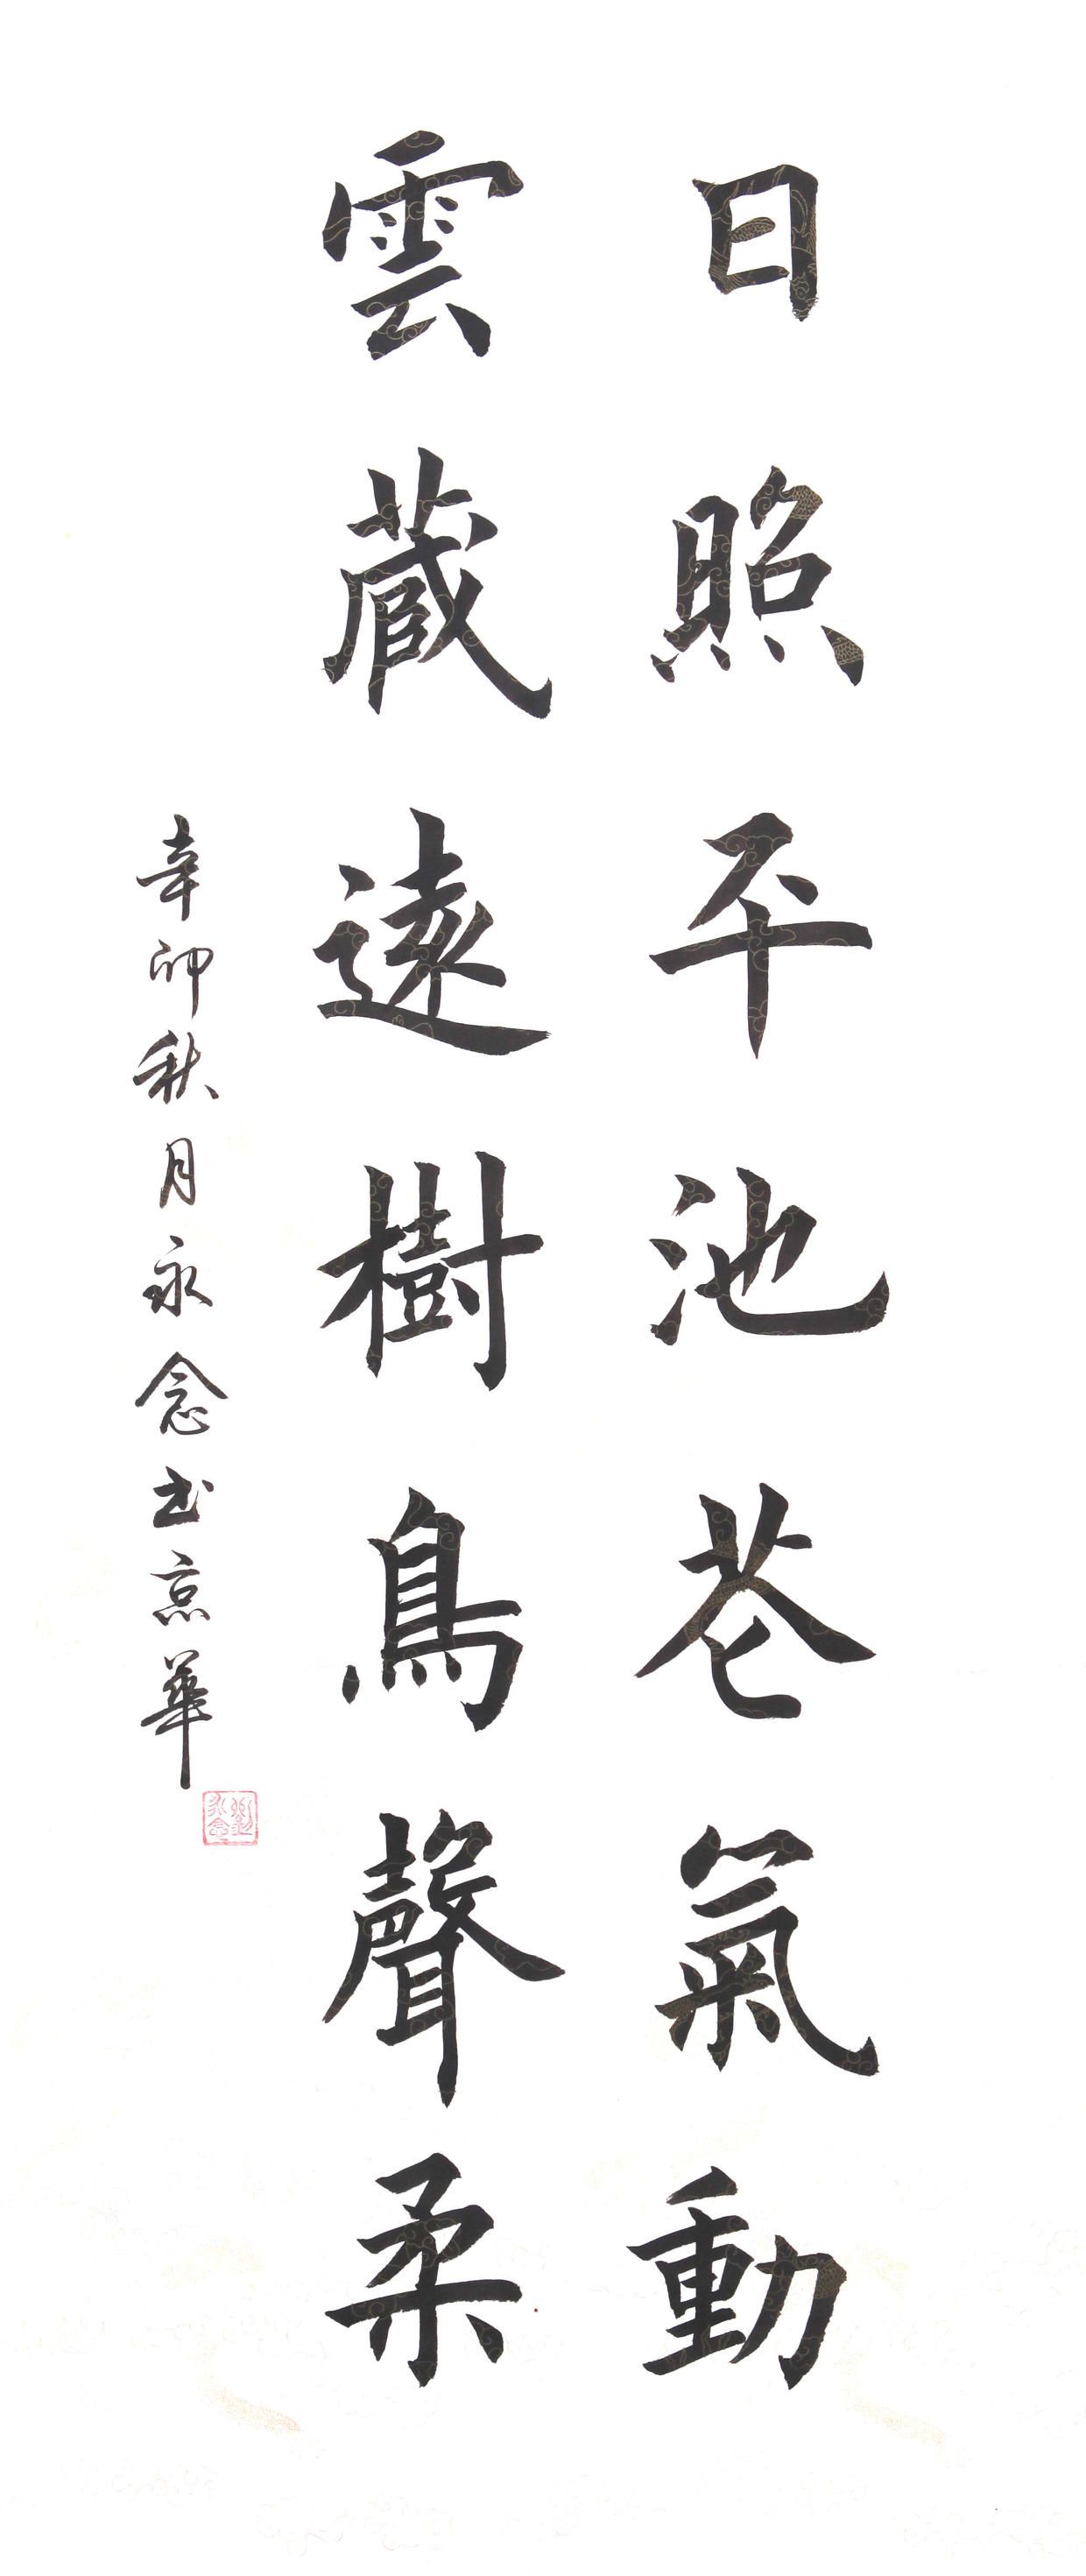 日照平池花氣動
雲藏遠樹鳥聲柔
辛卯秋月永念书京華
劉永念